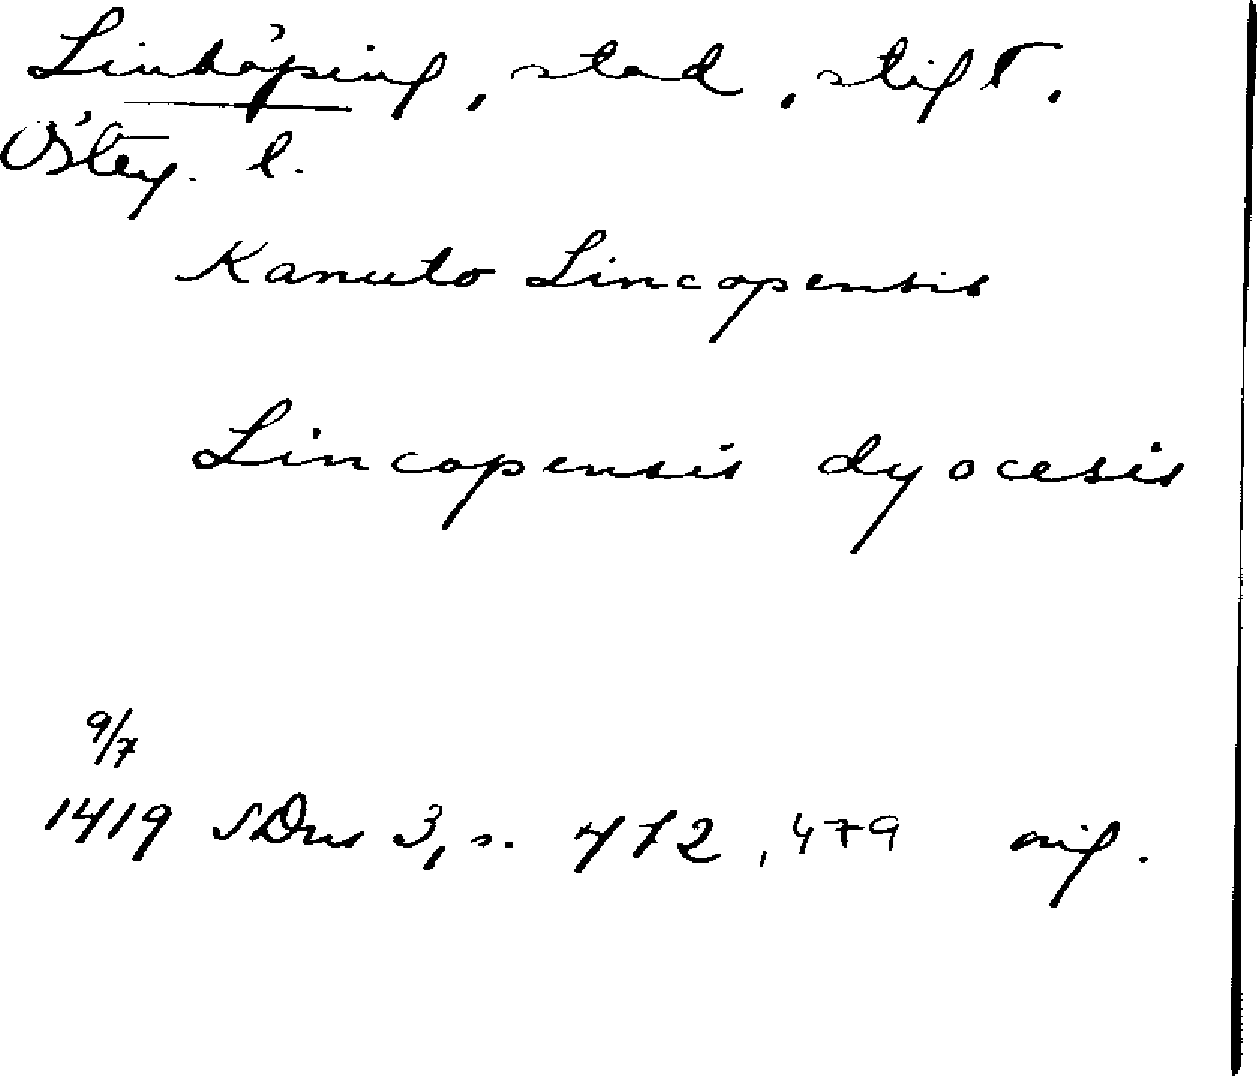 Linköping, stad, stift,
Österg. l.
Kanuto Lincopensis
Lincopensis dyocesis
9/7
1419 SDns 3, s. 472, 479 orig.